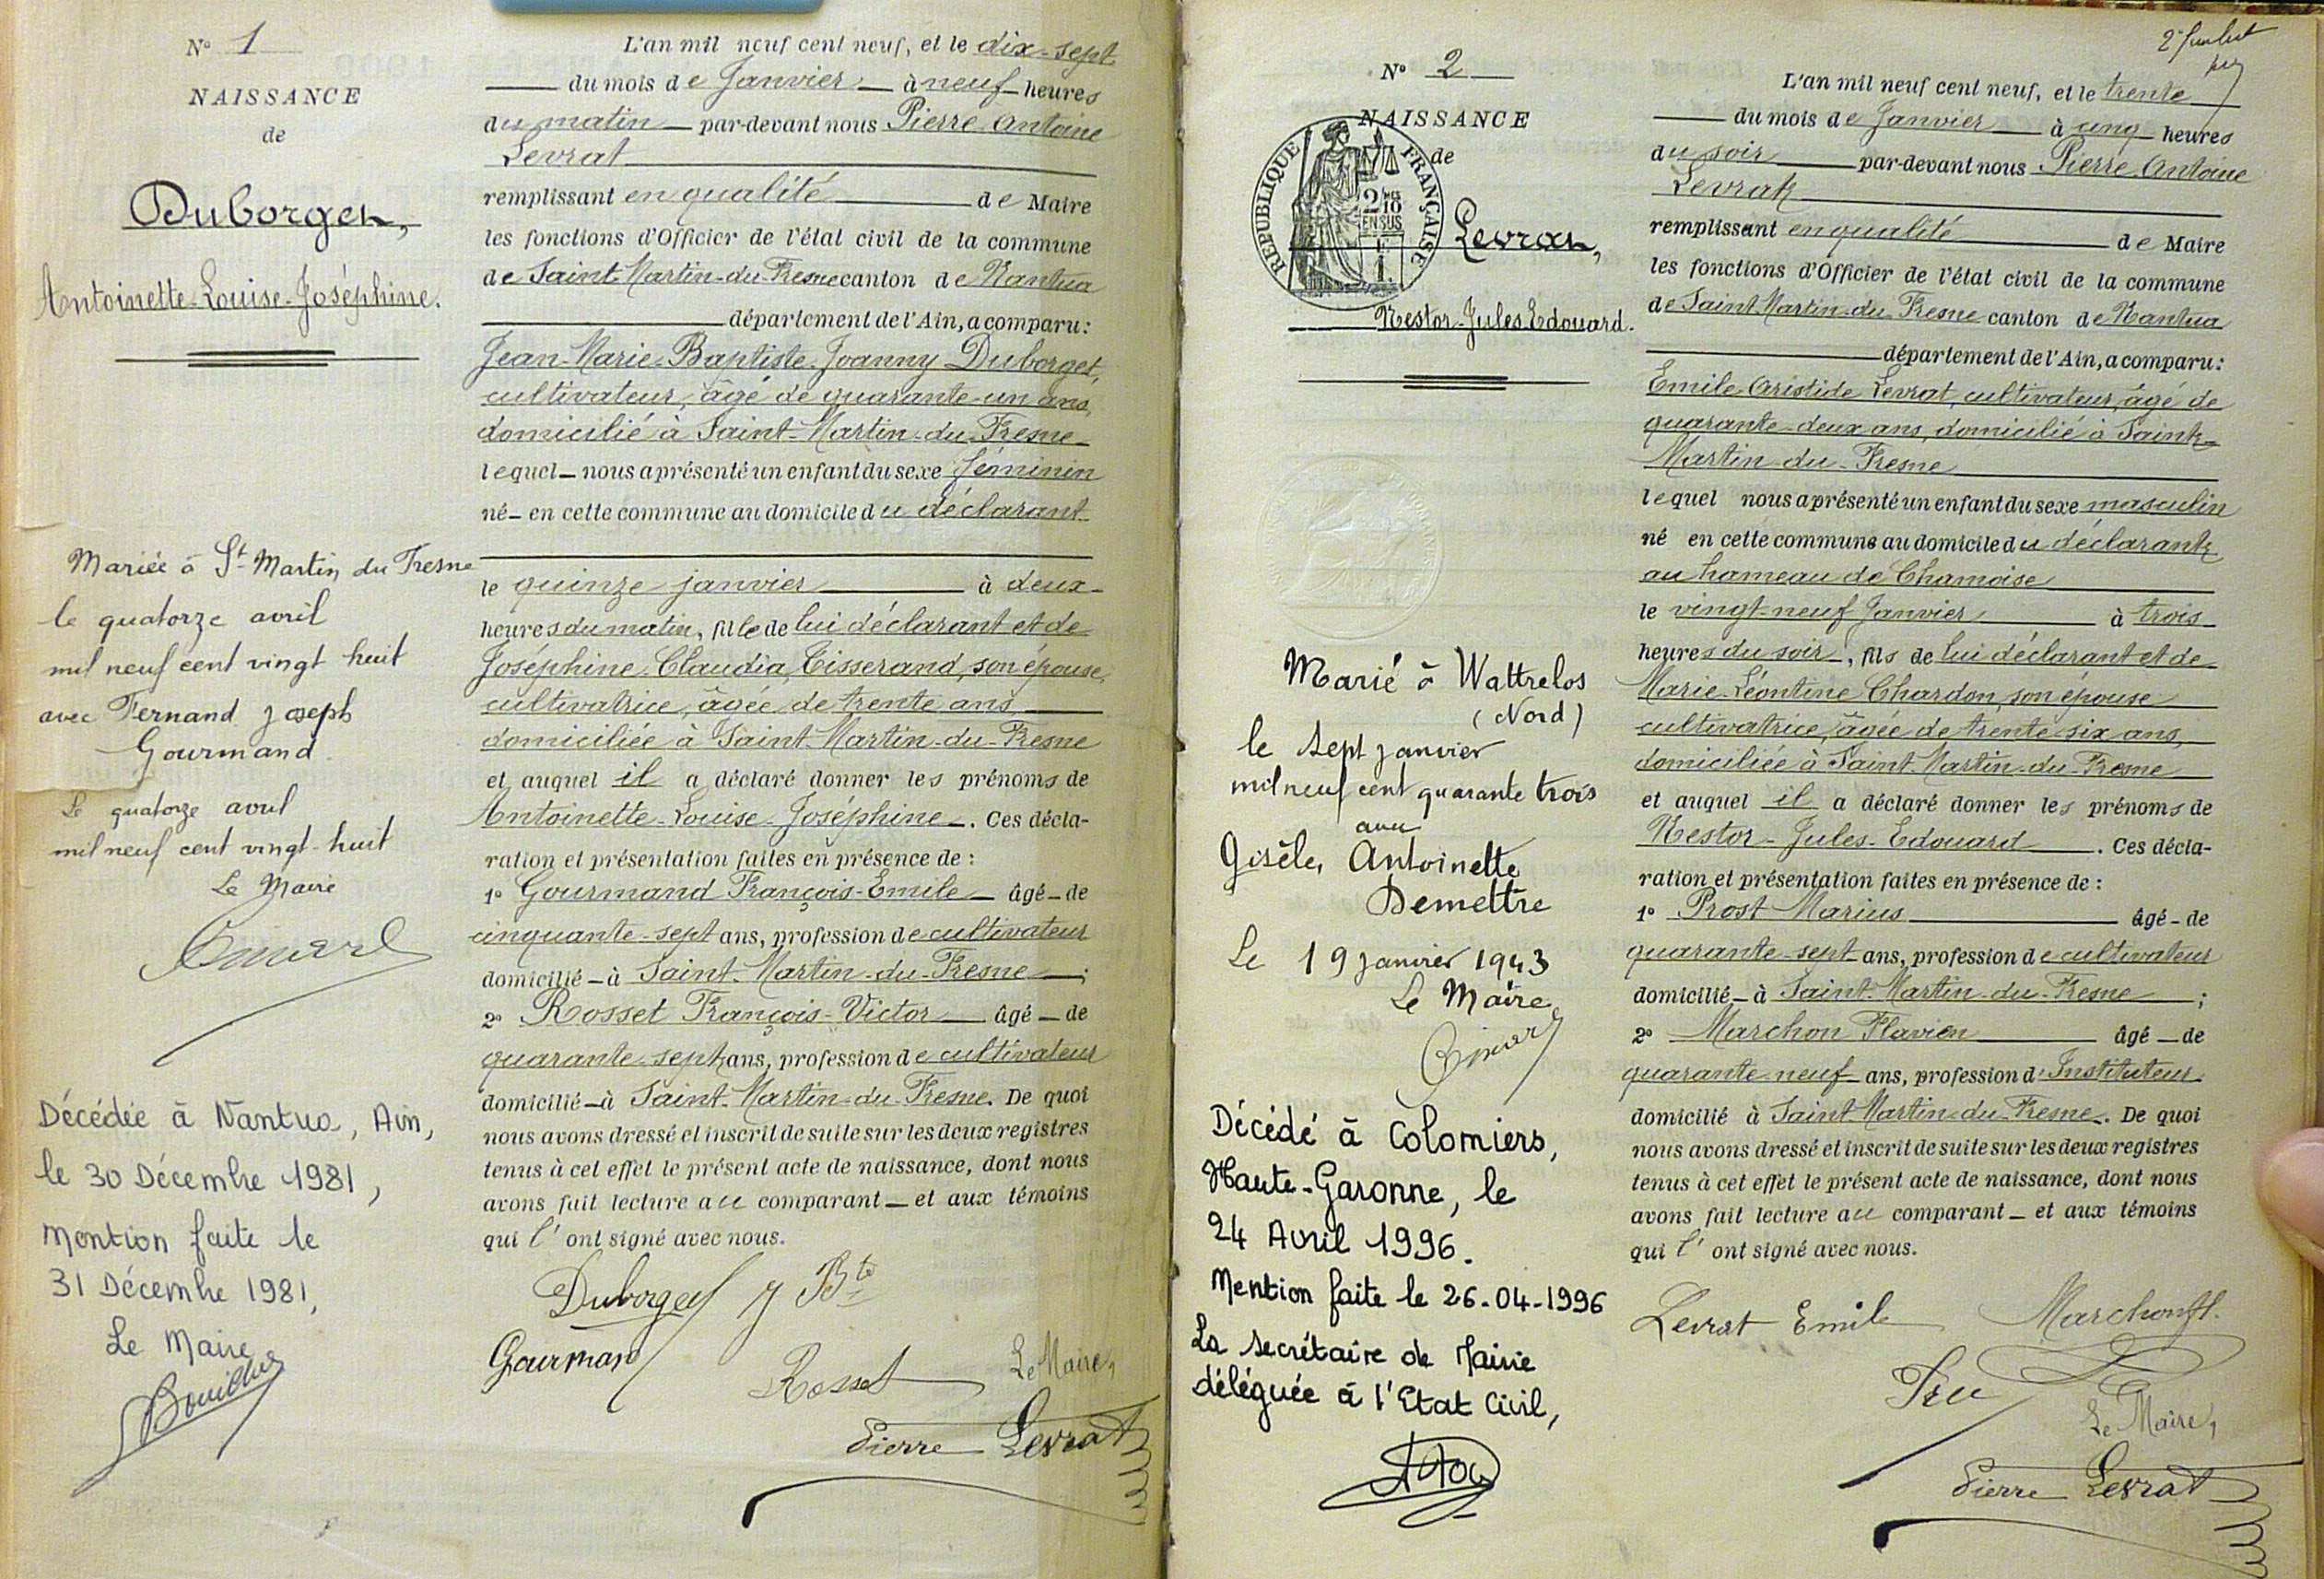 N° 1
NAISSANCE
de
Duborget,
Antoinette-Louise-Joséphine.
Mariée à St Martin du Fresne
le quatorze avril
mil neuf cent vingt huit
avec Fernand Joseph
Gourmand
Le quatorze avril
mil neuf cent vingt-huit
Le Maire
Décédée à Nantua, Ain,
le 30 Décembre 1981,
Mention faite le
31 Décembre 1981,
Le Maire
L'an mil neuf cent neuf, et le dix-sept
du mois de Janvier à neuf heures
du matin par-devant nous Pierre Antoine
Levrat
remplissant en qualité de Maire
les fonctions d'Officier de l'état civil de la commune
de Saint-Martin-du-Fresne canton de Nantua
département de l'Ain, a comparu :
Jean-Marie-Baptiste-Joanny Duborget,
cultivateur, âgé de quarante-un ans,
domicilié à Saint-Martin-du-Fresne
lequel nous a présenté un enfant du sexe féminin
né en cette commune au domicile du déclarant
le quinze janvier à deux
heures du matin, fille de lui déclarant et de
Joséphine Claudia Tisserand, son épouse,
cultivatrice, âgée de trente ans
domiciliée à Saint-Martin-du-Fresne
et auquel il a déclaré donner les prénoms de
Antoinette-Louise-Joséphine. Ces décla-
ration et présentation faites en présence de :
1° Gourmand François-Emile âgé de
cinquante-sept ans, profession de cultivateur
domicilié à Saint-Martin-du-Fresne ;
2° Rosset François-Victor âgé de
quarante-sept ans, profession de cultivateur
domicilié à Saint-Martin-du-Fresne. De quoi
nous avons dressé et inscrit de suite sur les deux registres
tenus à cet effet le présent acte de naissance, dont nous
avons fait lecture au comparant et aux témoins
qui l' ont signé avec nous.
Duborget J Bte
Gourmand
Rosset
Le Maire,
Pierre Levrat
N° 2
NAISSANCE
de
RÉPUBLIQUE FRANÇAISE
2/10
EN SUS
Levrat,
Nestor-Jules-Edouard.
Marié à Wattrelos
(Nord)
le sept janvier
mil neuf cent quarante trois
avec
Gisèle, Antoinette
Demettre
Le 19 janvier 1943
Le Maire
Décédé à Colomiers,
Haute-Garonne, le
24 Avril 1996.
Mention faite le 26-04-1996
La secrétaire de Mairie
déléguée à l'Etat Civil,
L'an mil neuf cent neuf, et le trente
du mois de Janvier à cinq heures
du soir par-devant nous Pierre Antoine
Levrat
remplissant en qualité de Maire
les fonctions d'Officier de l'état civil de la commune
de Saint-Martin-du-Fresne canton de Nantua
département de l'Ain, a comparu :
Emile Aristide Levrat, cultivateur, âgé de
quarante-deux ans, domicilié à Saint-
Martin-du-Fresne
lequel nous a présenté un enfant du sexe masculin
né en cette commune au domicile du déclarant
au hameau de Chamoise
le vingt-neuf Janvier à trois
heures du soir, fils de lui déclarant et de
Marie-Léontine Chardon, son épouse
cultivatrice, âgée de trente six ans,
domiciliée à Saint-Martin-du-Fresne
et auquel il a déclaré donner les prénoms de
Nestor-Jules-Edouard. Ces décla-
ration et présentation faites en présence de :
1° Prost Marius âgé de
quarante-sept ans, profession de cultivateur
domicilié à Saint-Martin-du-Fresne ;
2° Marchon Flavien âgé de
quarante neuf ans, profession d'Instituteur
domicilié à Saint-Martin-du-Fresne. De quoi
nous avons dressé et inscrit de suite sur les deux registres
tenus à cet effet le présent acte de naissance, dont nous
avons fait lecture au comparant et aux témoins
qui l' ont signé avec nous.
Levrat Emile
Marchon fl.
Le Maire,
Pierre Levrat